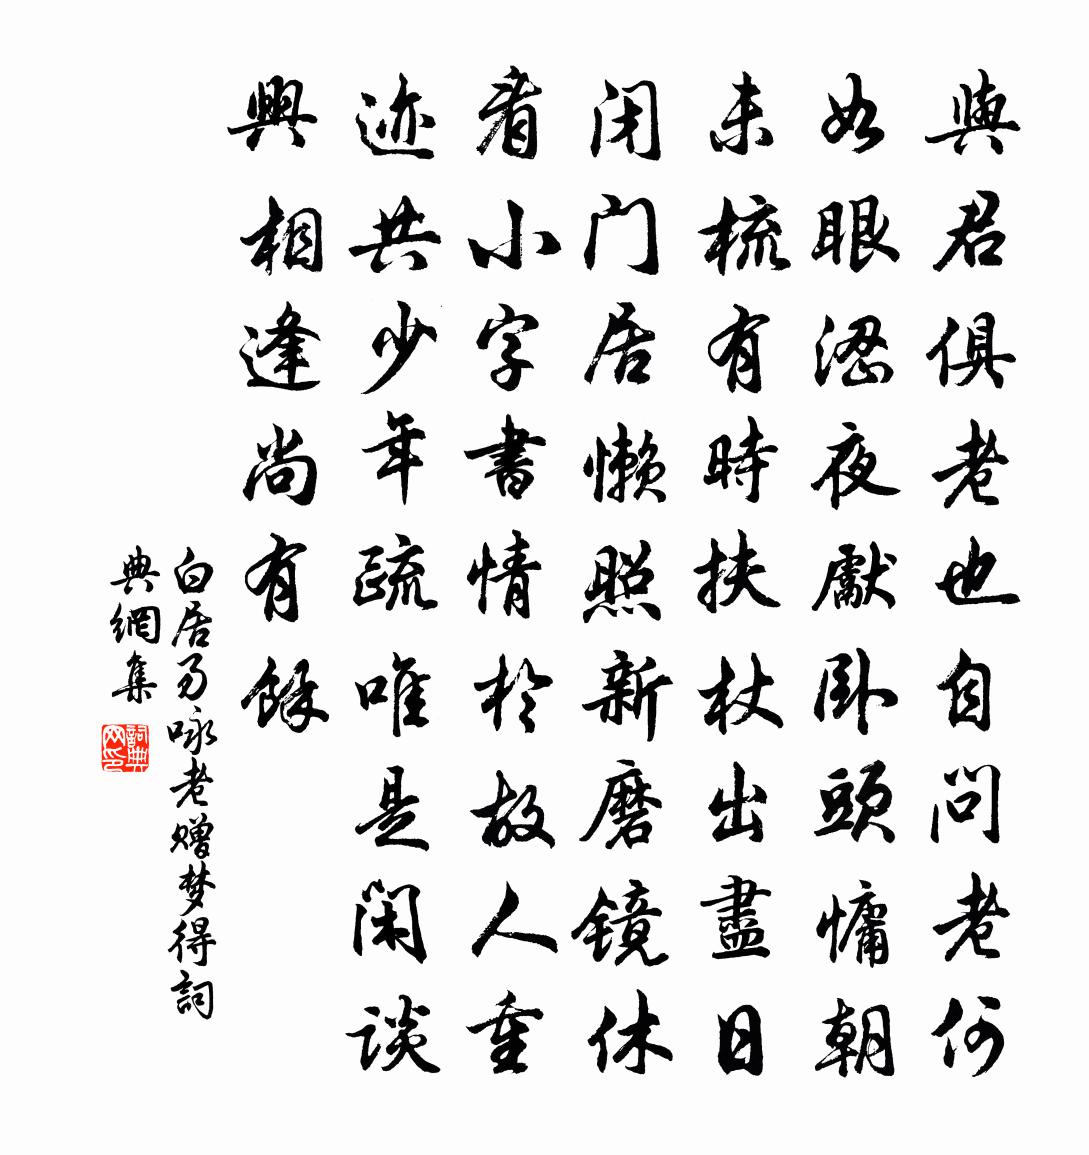 與君俱老也自問老何
如眼澀夜獻卧頭慵朝
未梳有時扶杖出盡日
闭门居懒照新磨镜休
看小字書情於故人重
迹共少年疏唯是闲谈
興相逢尚有餘
白居易咏老赠梦得詞
典網集
詞典网印